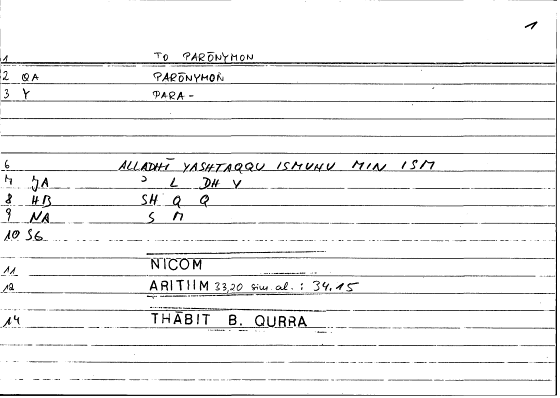 1
1 TO PARŌNYMON
2 QA PARŌNYMON
3 Y PARA-
6 ALLADHĪ YASHTAQQU ISMUHU MIN ISM
7 JA ʾ L DH Y
8 HB SH Q Q
9 NA S M
10 SG
11 NICOM
12 ARITHM 33,20 sim. al. : 34.15
14 THĀBIT B. QURRA